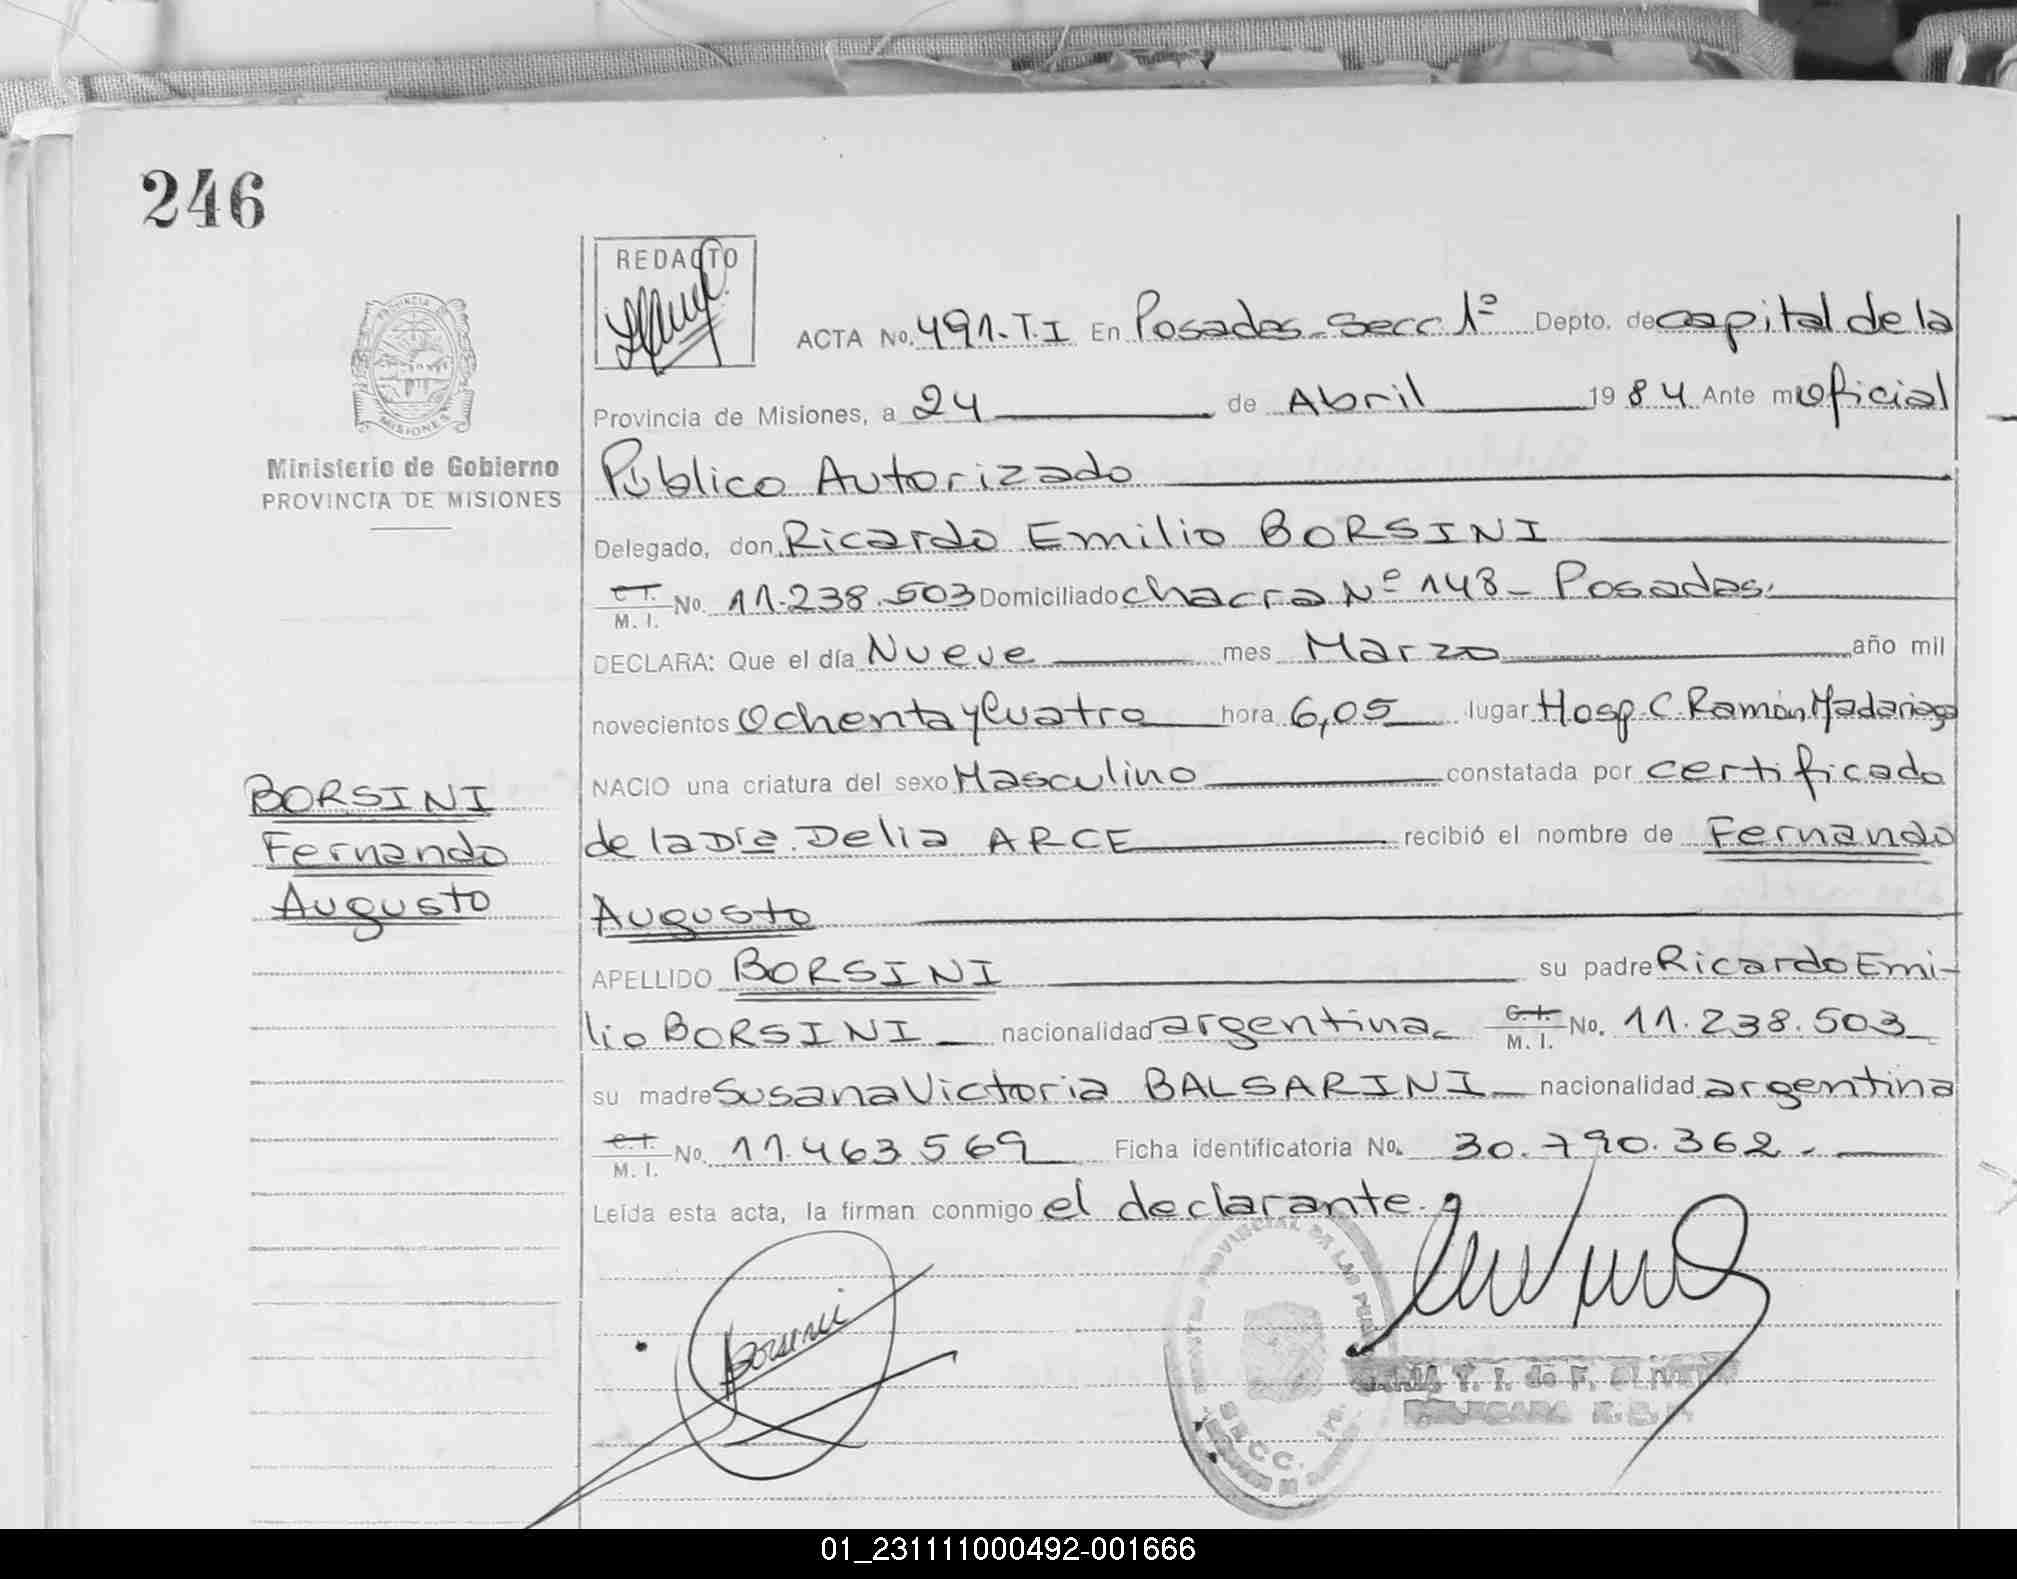 246
REDACTO
ACTA No. 491-T.I En Posadas-Secc 1ª Depto. de capital de la
Provincia de Misiones, a 24 de Abril 1984 Ante mi oficial
Público Autorizado
Ministerio de Gobierno
PROVINCIA DE MISIONES
Delegado, don Ricardo Emilio BORSINI
C.I. M. I. No. 11.238.503 Domiciliado chacra Nº 148 - Posadas.
DECLARA: Que el día Nueve mes Marzo año mil
novecientos Ochenta y Cuatro hora 6,05 lugar Hosp. C. Ramón Madariaga
NACIO una criatura del sexo Masculino constatada por certificado
de la Dra. Delia ARCE recibió el nombre de Fernando
Augusto
BORSINI
Fernando
Augusto
APELLIDO BORSINI su padre Ricardo Emi-
lio BORSINI nacionalidad argentina C.I. M. I. No. 11.238.503
su madre Susana Victoria BALSARINI nacionalidad argentina
C.I. M. I. No. 11.463.569 Ficha identificatoria No. 30.790.362.-
Leída esta acta, la firman conmigo el declarante.
Borsini
PROVINCIAL DE LAS
SECC. 1ra.
Y. I. de F.
01_231111000492-001666